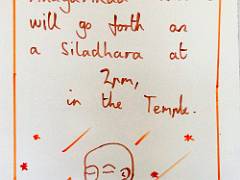 will go forth as
a Siladhara at
2pm,
in the Temple.